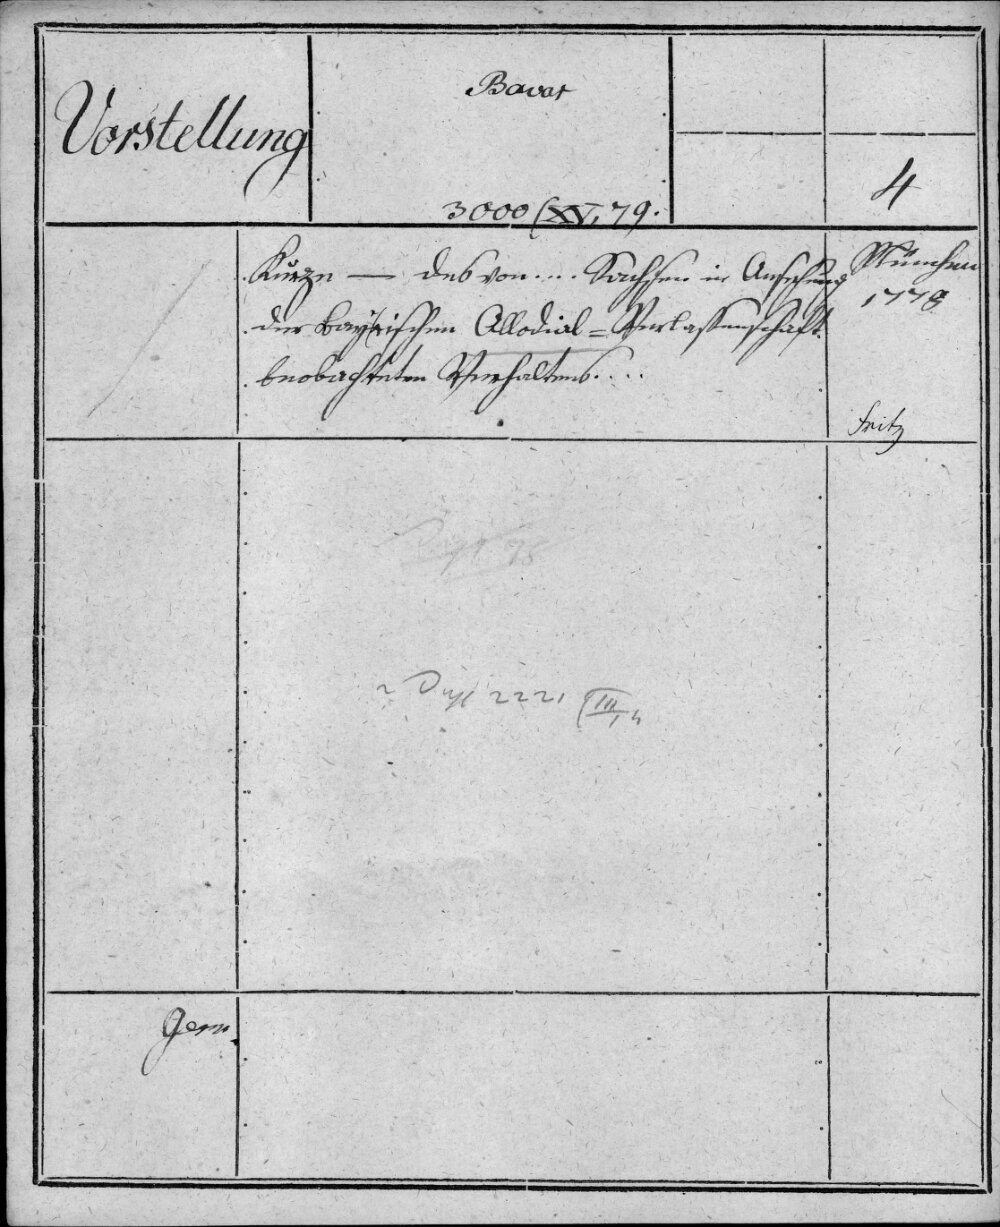 Vorstellung
Bavar
3000 (XV, 79.
4
Kurze — des von .... Sachsen in Ansehung
der bayrischen Allodial=Verlassenschaft
beobachteten Verhaltens....
München
1778
fritz
Dupl 78
2 Dupl 2221
Germ.